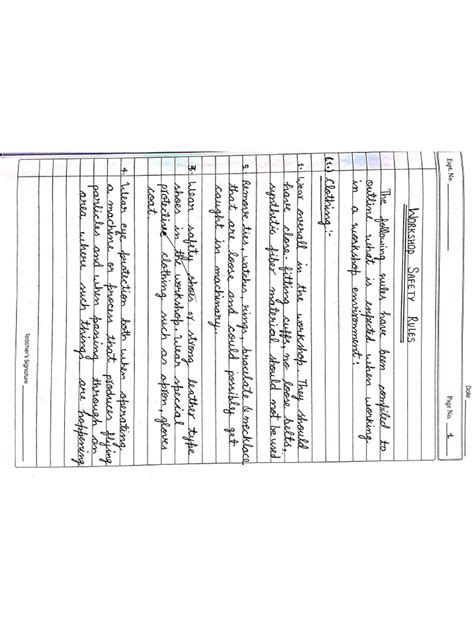 Date
Expt. No.
Page No. 1
WORKSHOP SAFETY RULES
The following rules have been compiled to
outline what is expected when working
in a workshop environment:
(1.) Clothing :-
1. Wear overall in the workshop. They should
have close-fitting cuffs, no loose belts,
synthetic fiber material should not be used
2. Remove ties, watches, rings, bracelate & necklace
that are loose and could possibly get
caught in machinary.
3. Wear safety shoes or strong leather type
shoes in the workshop. Wear special
protective clothing such as apron, gloves
coat.
4. Wear eye protection both when operating
a machine or process that produces flying
particles and when passing through an
area where such things are happening
Teacher's Signature